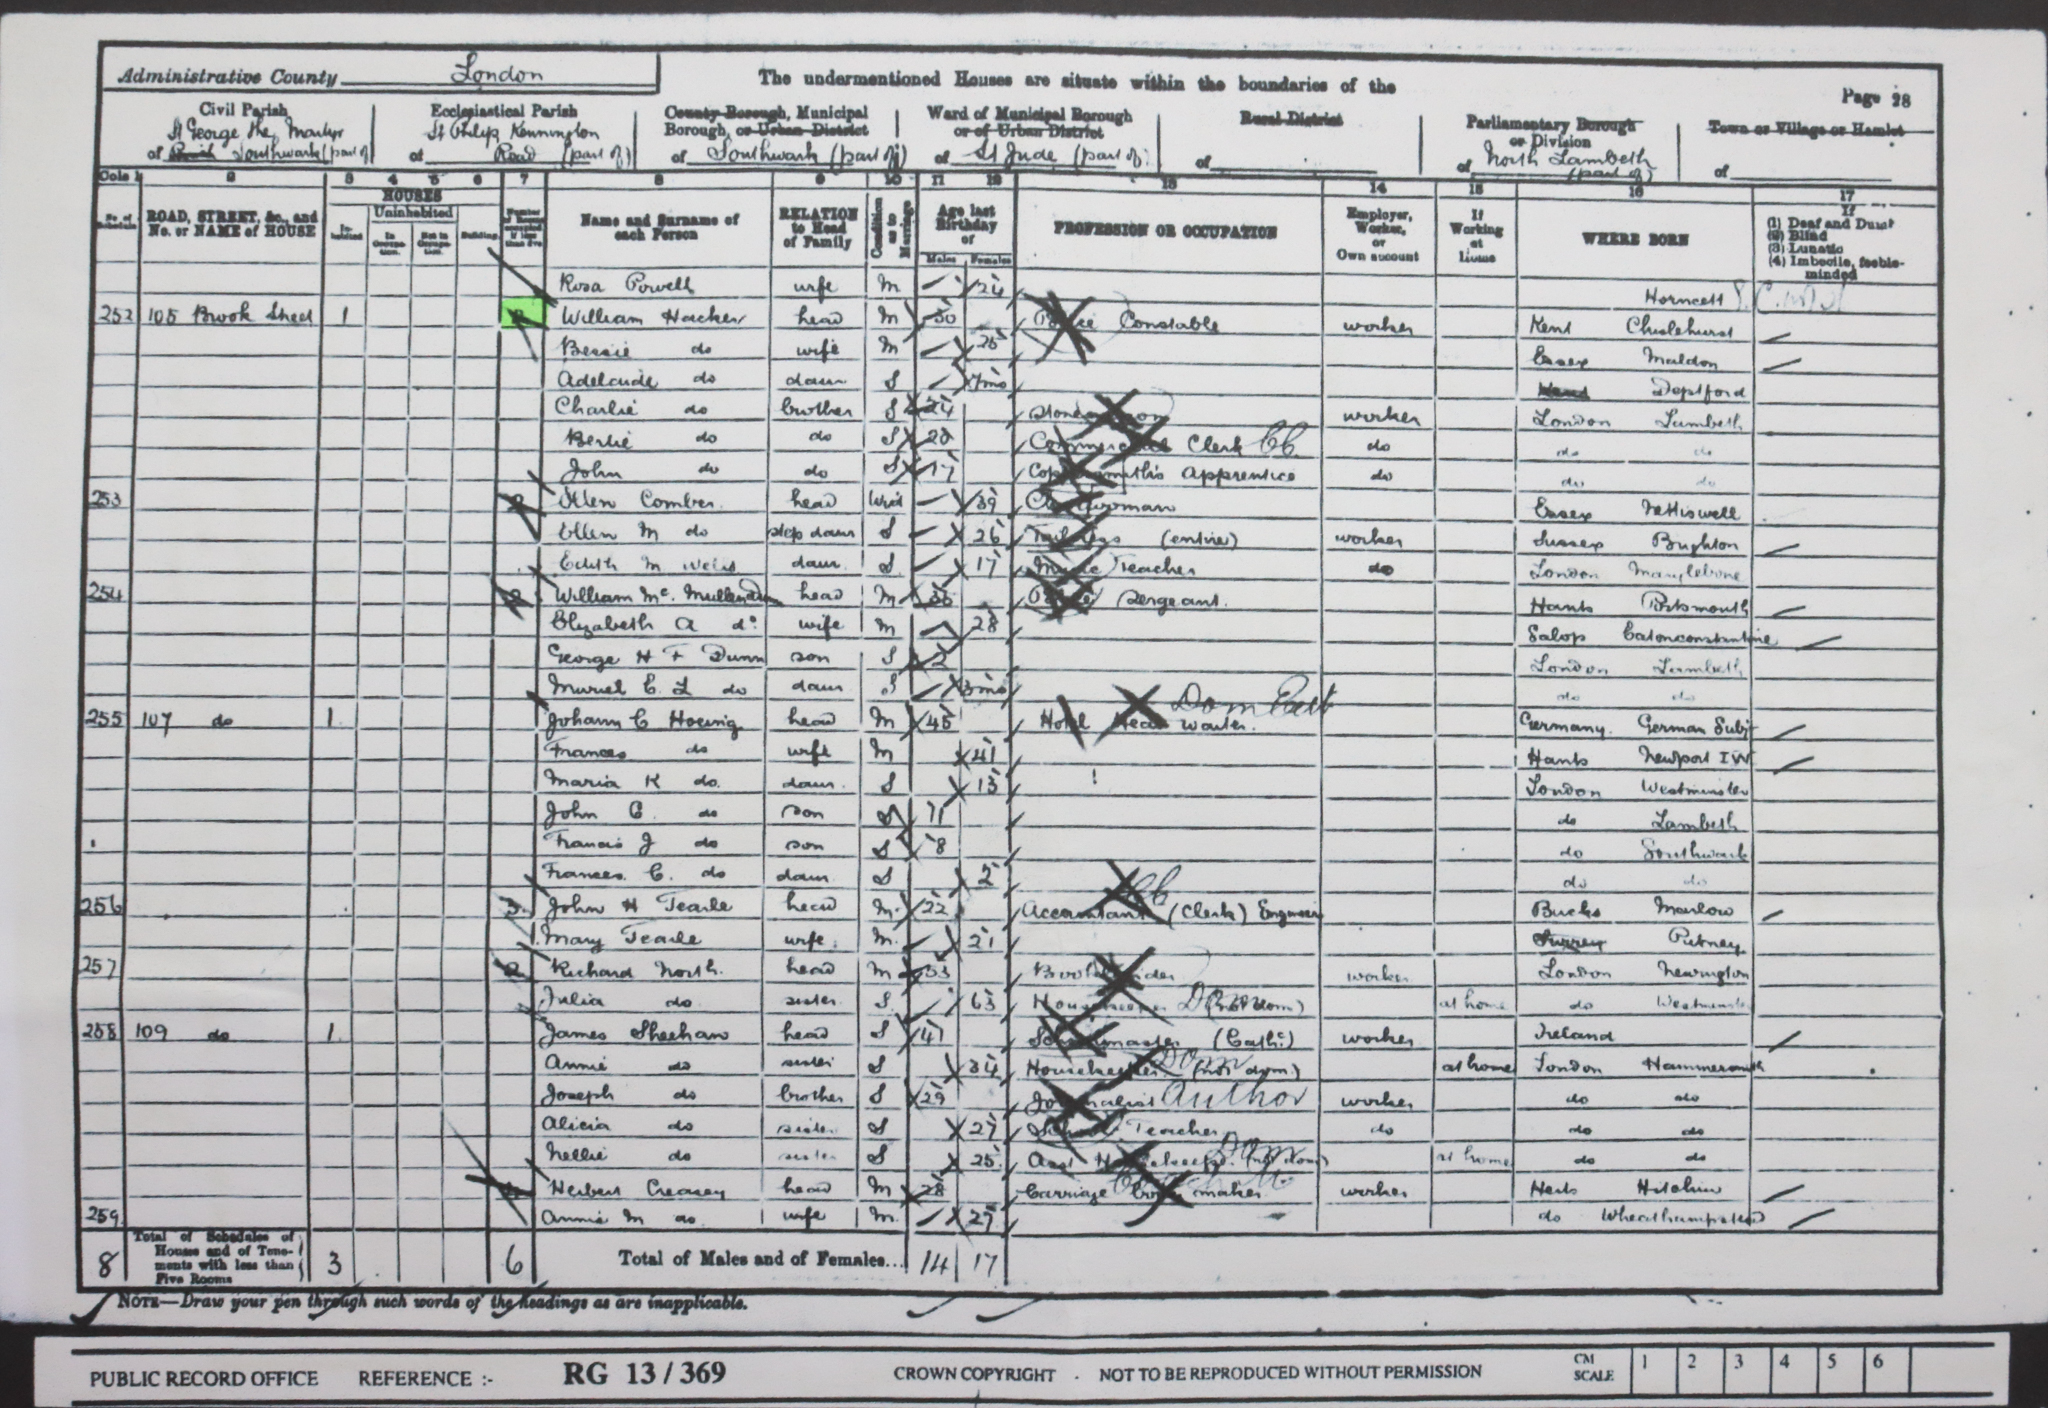 Administrative County London
The undermentioned Houses are situate within the boundaries of the
Page 28
Civil Parish
St George the Martyr
of Southwark (part of)
Ecclesiastical Parish
St Philip Kennington
of Road (part of)
County Borough, Municipal
Borough, or Urban District
of Southwark (part of)
Ward of Municipal Borough
or of Urban District
of St Jude (part of)
Rural District
of
Parliamentary Borough
or Division
of North Lambeth
(part of)
Town or Village or Hamlet
of
Cols 1 2 3 4 5 6 7 8 9 10 11 12 13 14 15 16 17
No. of Schedule
ROAD, STREET, &c., and
No. or NAME of HOUSE
HOUSES
Inhabited
Uninhabited
In Occupation.
Not in Occupation.
Building.
Number of Rooms occupied if less than five
Name and Surname of
each Person
RELATION
to Head
of Family
Condition as to Marriage
Age last
Birthday
of
Males Females
PROFESSION OR OCCUPATION
Employer,
Worker,
or
Own account
If
Working
at
Home
WHERE BORN
If
(1) Deaf and Dumb
(2) Blind
(3) Lunatic
(4) Imbecile, feeble-
minded
Rosa Powell wife M 24 Horncett
252 105 Brook Street 1 William Hacker head M 30 Police Constable worker Kent Chislehurst
Bessie do wife M 25 Essex Maldon
Adelaide do daur S 7mo Deptford
Charlie do brother S 24 worker London Lambeth
Bertie do do S 20 Commercial Clerk CC do do do
John do do S 17 Coppersmith's Apprentice do do do
253 2 Ellen Comber head Wid 39 Charwoman Essex Nettiswell
Ellen M do step daur S 26 Tailoress (entire) worker Sussex Brighton
Edith M daur S 17 Music Teacher do London Marylebone
254 2 William Mc. head M 36 Police Sergeant. Hants Portsmouth
Elizabeth A do wife M 28 Salop Eatonconstantine
George H F Dunn son S 2 London Lambeth
Muriel E. L do daur S 3mo do do
255 107 do 1 Johann C Hoeing head M 45 Hotel Head waiter. Dom Germany. German Subj
Frances do wife M 41 Hants Newport I W
Maria K do. daur. S 13 London Westminster
John C. do son S 11 do Lambeth
Francis J do son S 8 do Southwark
Frances. C. do daur S 2 do do
256 3 John H Tearle head M. 22 Accountant (Clerk) Engineer CC Bucks Marlow
Mary Tearle wife M. 21 Surrey Putney
257 2 Richard North. head M 53 Bookbinder worker London Newington
Julia do. sister. S 63 Housekeeper (not dom) Dom at home do Westminster
258 109 do 1 James Sheehan head S 41 Schoolmaster (Cath:) worker Ireland
Annie do sister S 34 Housekeeper (not dom.) Dom at home London Hammersmith
Joseph do brother S 29 Journalist Author worker do do
Alicia do sister S 27 School Teacher do do do
Nellie do sister S 25 Asst Housekeeper (not dom) Dom at home do do
Herbert Creasey head M 28 Carriage Body maker worker Herts Hitchin
259 Annie M do wife M. 27 do Wheathampstead
8 Total of Schedules of
Houses and of Tene-
ments with less than
Five Rooms
3 6 Total of Males and of Females... 14 17
NOTE—Draw your pen through such words of the headings as are inapplicable.
PUBLIC RECORD OFFICE REFERENCE :- RG 13 / 369 CROWN COPYRIGHT . NOT TO BE REPRODUCED WITHOUT PERMISSION
CM
SCALE
1 2 3 4 5 6